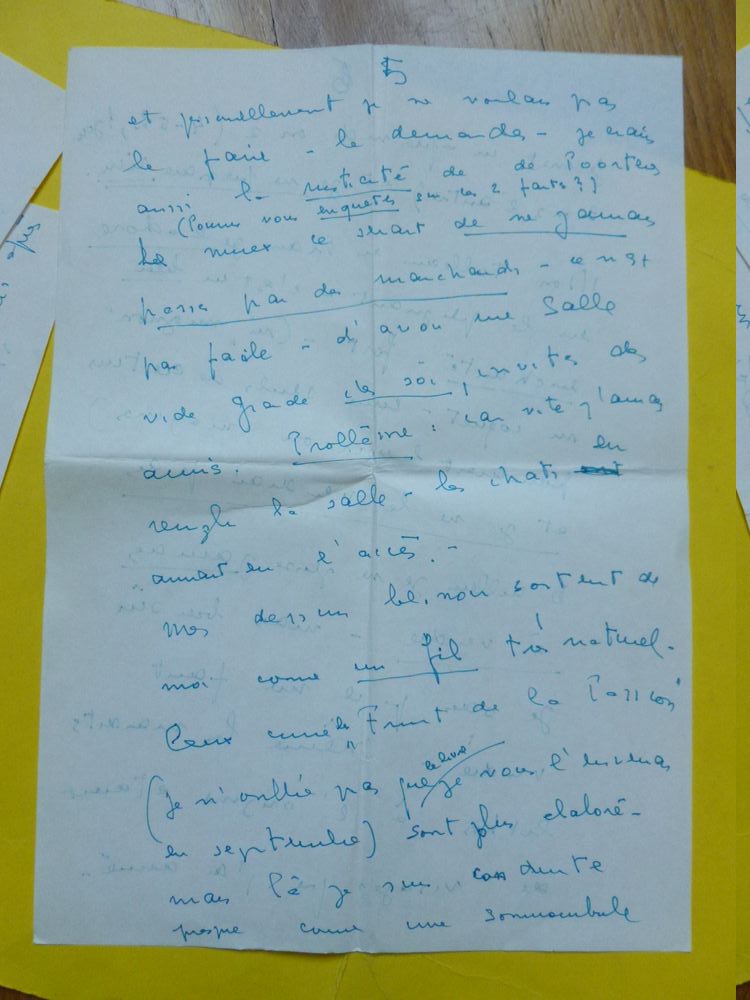 5
et personellement je ne voulais pas
le faire - le demander - je crais
aussi la rusticité de de Poorters
(Pourriez vous enquetes sur les 2 forts ??)
Le mieux ce serait de ne jamais
passer par des marchands - ce n'est
pas facile - d'avoir une Salle
vide grade chez soi, invites des
amis. Problème : car vite j'aurais
rempli la salle - les chats en
auraient eu l'accès. -
Mes dessins bé. nou sortent de
moi come un fil très naturel.
Ceux come les Fruit de la Passion
(Je n'oublie pas que je vous l'enverrai
ce livre
en septembre) sont plus elaboré -
mais là je suis conduite
presque come une somnambule